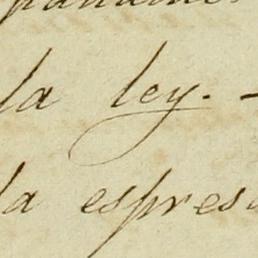 la ley. -
la espres